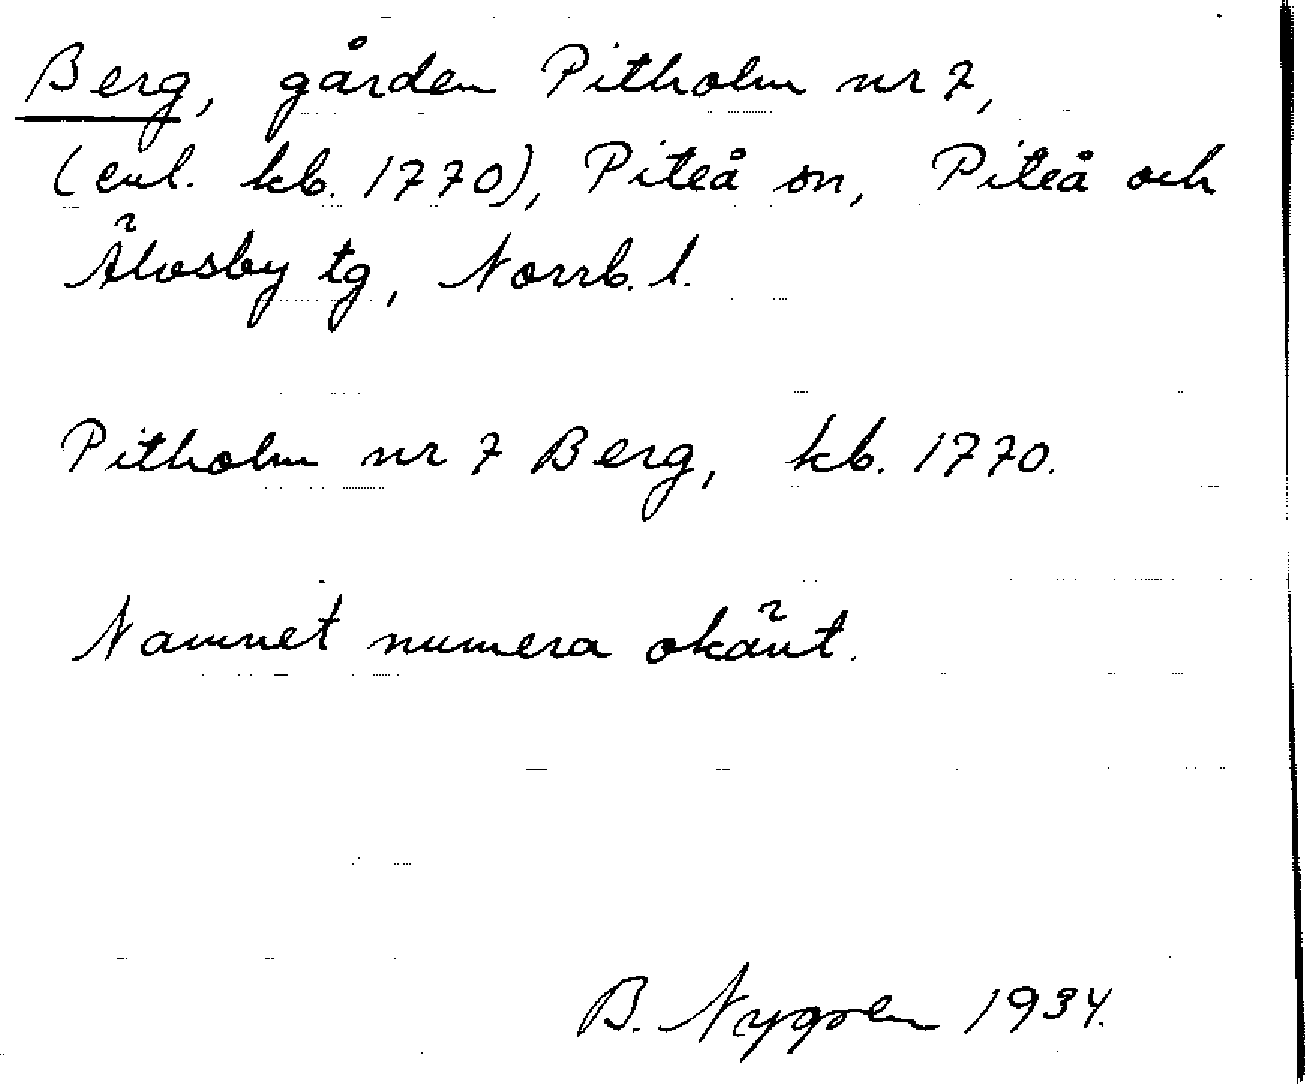 Berg, gården Pitholm nr 7,
(enl. kb. 1770), Piteå sn, Piteå och
Älvsby tg, Norrb. l.
Pitholm nr 7 Berg, kb. 1770.
Namnet numera okänt.
B. Nygren 1934.